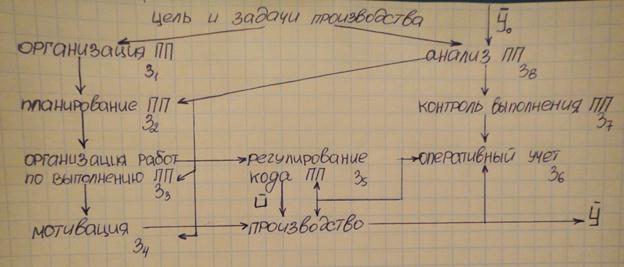 цель и задачи производства
Ȳ₀
организация ПП
З₁
анализ ПП
З₈
планирование ПП
З₂
контроль выполнения ПП
З₇
организация работ
по выполнению ПП
З₃
регулирование
кода ПП
З₅
оперативный учет
З₆
Ū
мотивация
З₄
производство
Ȳ